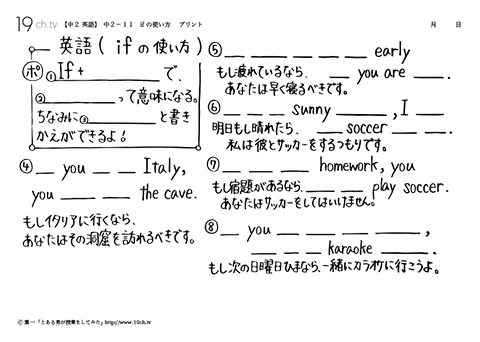 19ch.tv 【中2 英語】 中2-11 ifの使い方 プリント 月 日
英語( ifの使い方 )
ポ ①If + ________ で、
②________って意味になる。
ちなみに③________と書き
かえができるよ!
④ __ you __ __ Italy,
you ____ ____ the cave.
もしイタリアに行くなら、
あなたはその洞窟を訪れるべきです。
⑤ __ __ __ __ __ __ early
もし疲れているなら、 __ you are __.
あなたは早く寝るべきです。
⑥ __ __ __ sunny ____, I __
明日もし晴れたら、 __ soccer __ __.
私は彼とサッカーをするつもりです。
⑦ __ __ __ __ homework, you
もし宿題があるなら、 __ __ play soccer.
あなたはサッカーをしてはいけません!
⑧ __ you __ __ __ ____,
__ __ karaoke ____.
もし次の日曜日ひまなら、一緒にカラオケに行こうよ。
© 葉一「とある男が授業をしてみた」http://www.19ch.tv